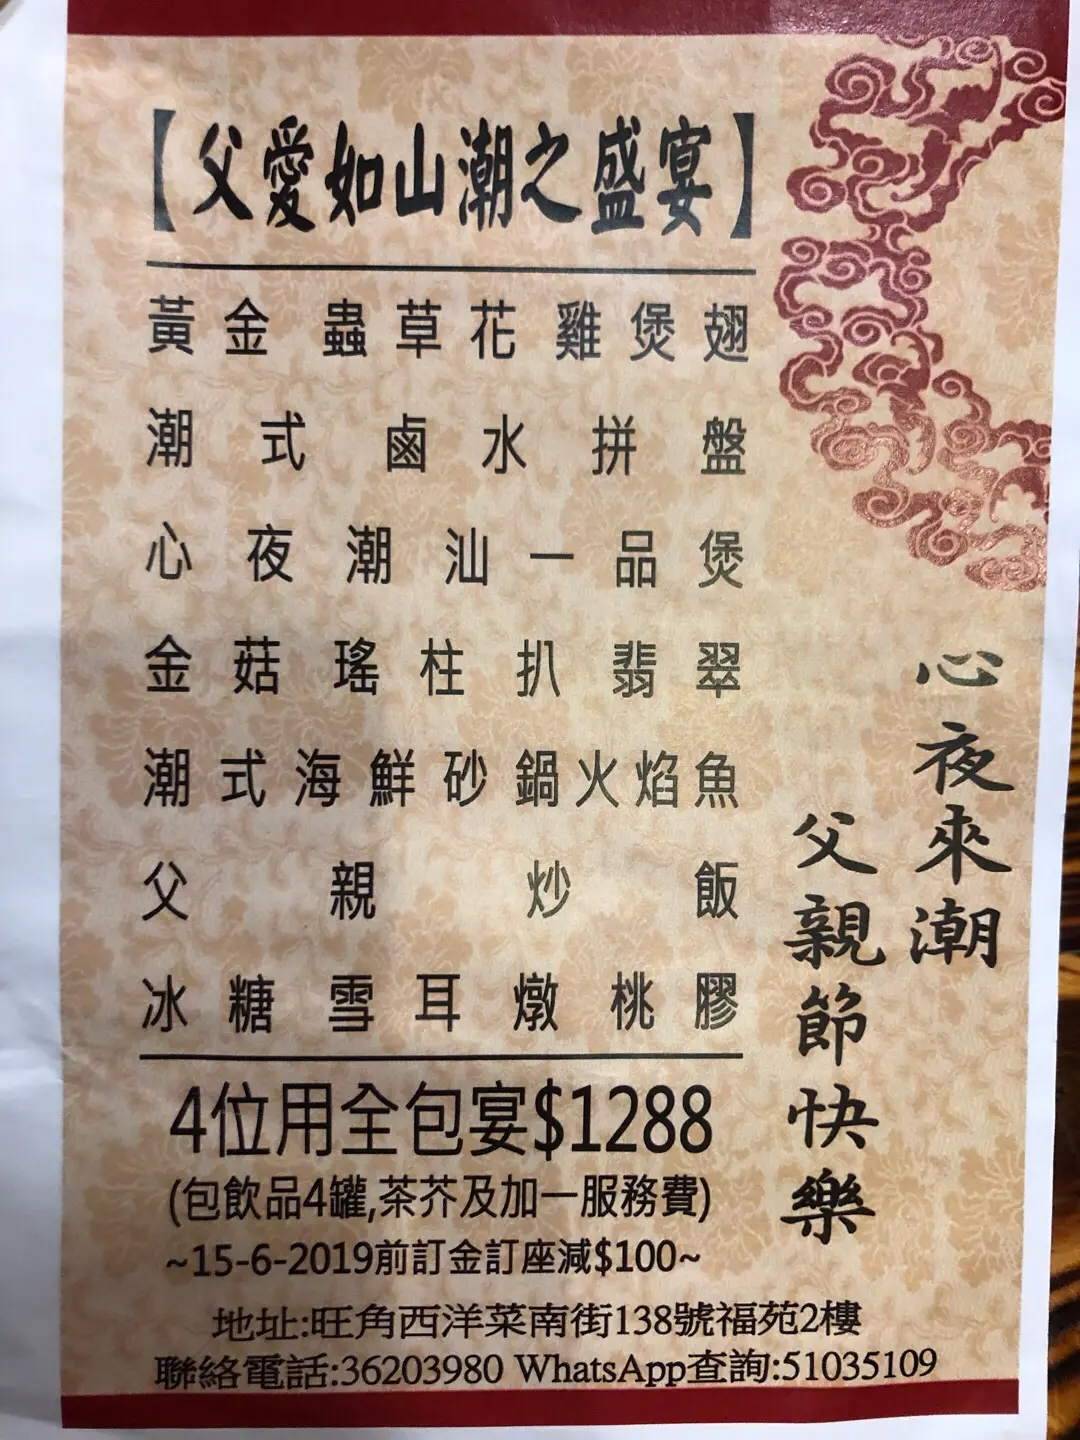 【父愛如山潮之盛宴】
黃金蟲草花雞煲翅
潮式鹵水拼盤
心夜潮汕一品煲
金菇瑤柱扒翡翠
潮式海鮮砂鍋火焰魚
父親炒飯
冰糖雪耳燉桃膠
4位用全包宴$1288
(包飲品4罐,茶芥及加一服務費)
~15-6-2019前訂金訂座減$100~
心夜來潮
父親節快樂
地址:旺角西洋菜南街138號福苑2樓
聯絡電話:36203980 WhatsApp查詢:51035109